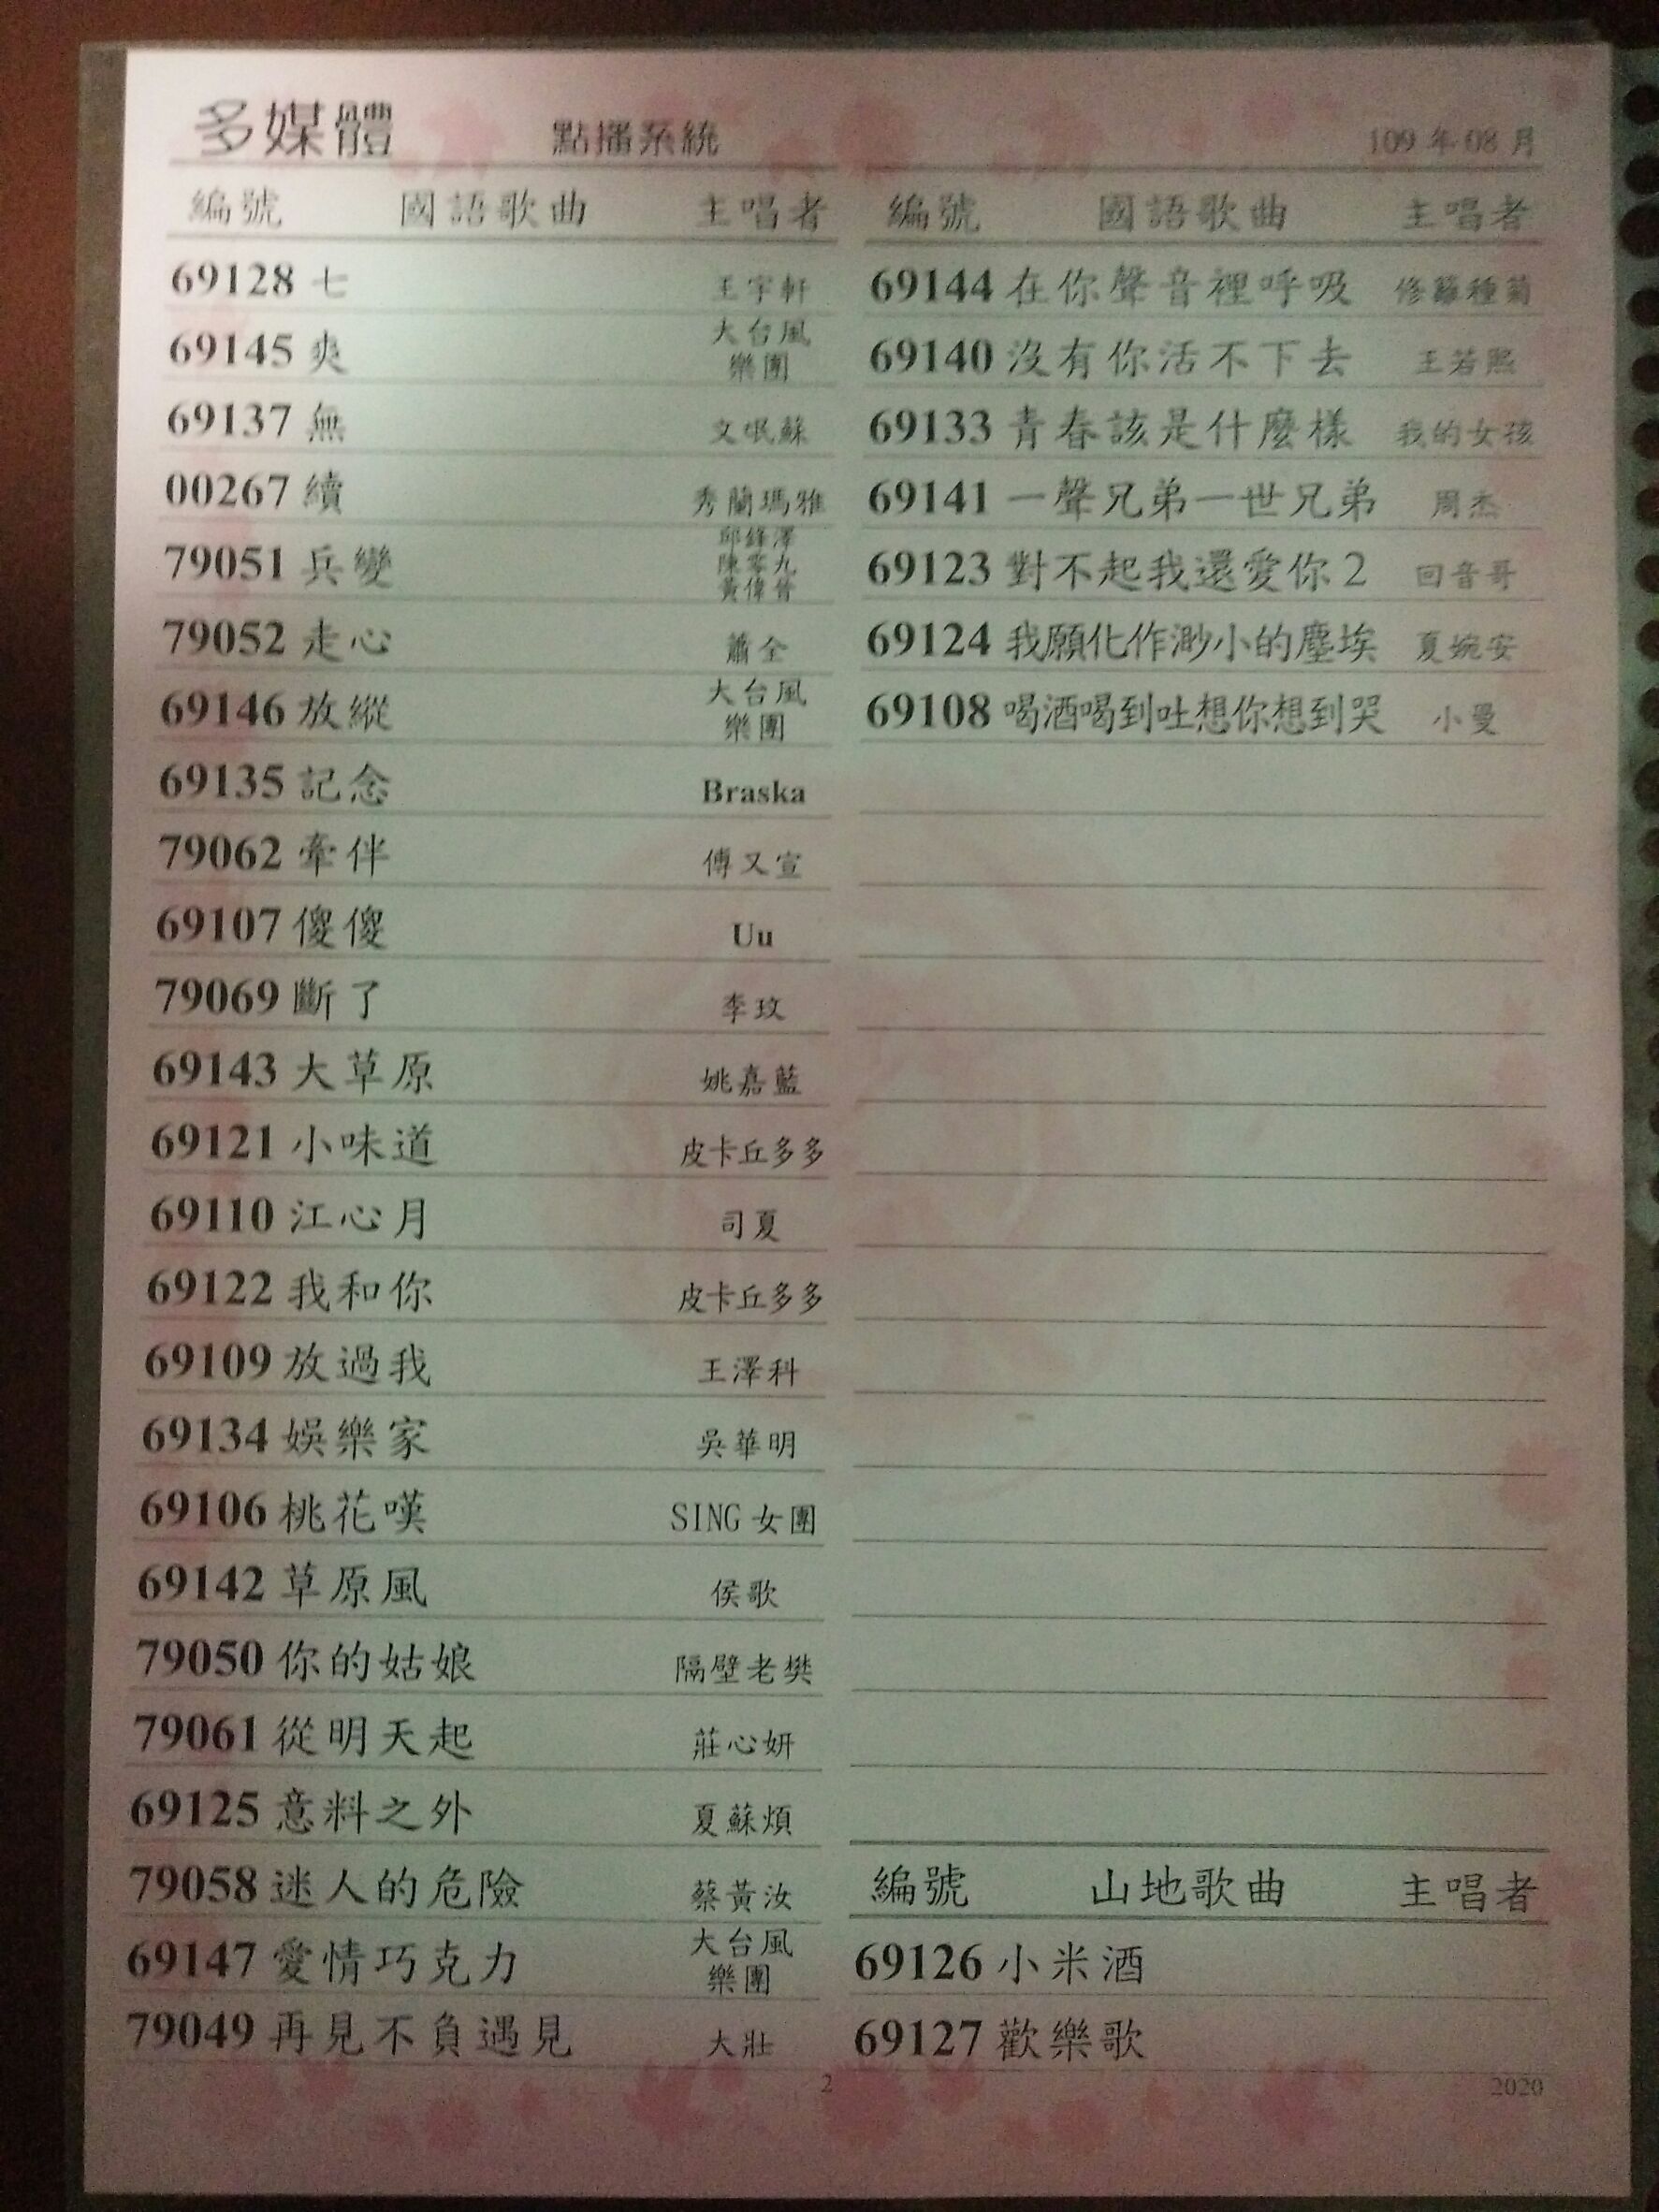 多媒體 點播系統 109年08月
編號 國語歌曲 主唱者
69128 七 王宇軒
69145 爽 大台風樂團
69137 無 文岷蘇
00267 續 秀蘭瑪雅
79051 兵變 邱鋒澤 陳零九 黃偉晉
79052 走心 蕭全
69146 放縱 大台風樂團
69135 記念 Braska
79062 牽伴 傅又宣
69107 傻傻 Uu
79069 斷了 李玟
69143 大草原 姚嘉藍
69121 小味道 皮卡丘多多
69110 江心月 司夏
69122 我和你 皮卡丘多多
69109 放過我 王澤科
69134 娛樂家 吳華明
69106 桃花嘆 SING女團
69142 草原風 侯歌
79050 你的姑娘 隔壁老樊
79061 從明天起 莊心妍
69125 意料之外 夏蘇煩
79058 迷人的危險 蔡黃汝
69147 愛情巧克力 大台風樂團
79049 再見不負遇見 大壯
編號 國語歌曲 主唱者
69144 在你聲音裡呼吸 修籬種菊
69140 沒有你活不下去 王若熙
69133 青春該是什麼樣 我的女孩
69141 一聲兄弟一世兄弟 周杰
69123 對不起我還愛你2 回音哥
69124 我願化作渺小的塵埃 夏婉安
69108 喝酒喝到吐想你想到哭 小曼
編號 山地歌曲 主唱者
69126 小米酒
69127 歡樂歌
2
2020